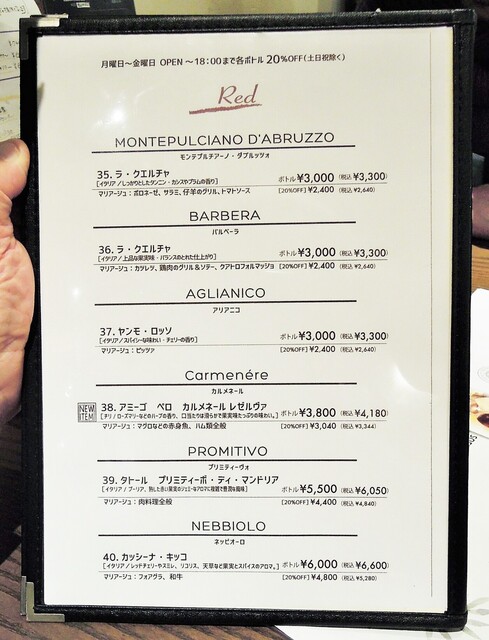 月曜日～金曜日 OPEN ～18:00まで各ボトル 20%OFF(土日祝除く)
Red
MONTEPULCIANO D'ABRUZZO
モンテプルチアーノ・ダブルッツォ
35. ラ・クエルチャ ボトル¥3,000 (税込 ¥3,300)
[イタリア / しっかりとしたタンニン・カシスやプラムの香り]
マリアージュ：ボロネーゼ、サラミ、仔羊のグリル、トマトソース [20%OFF] ¥2,400 (税込 ¥2,640)
BARBERA
バルベーラ
36. ラ・クエルチャ ボトル¥3,000 (税込 ¥3,300)
[イタリア / 上品な果実味・バランスのとれた仕上がり]
マリアージュ：カツレツ、鶏肉のグリル&ソテー、クアトロフォルマッジョ [20%OFF] ¥2,400 (税込 ¥2,640)
AGLIANICO
アリアニコ
37. ヤンモ・ロッソ ボトル¥3,000 (税込 ¥3,300)
[イタリア / スパイシーな味わい・チェリーの香り]
マリアージュ：ピッツァ [20%OFF] ¥2,400 (税込 ¥2,640)
Carmenére
カルメネール
NEW ITEM 38. アミーゴ ペロ カルメネール レゼルヴァ ボトル¥3,800 (税込 ¥4,180)
[チリ / ローズマリーなどのハーブの香り、口当たりは滑らかで果実味たっぷりの味わい。]
マリアージュ：マグロなどの赤身魚、ハム類全般 [20%OFF] ¥3,040 (税込 ¥3,344)
PROMITIVO
プリミティーヴォ
39. タトール プリミティーボ・ディ・マンドリア ボトル¥5,500 (税込 ¥6,050)
[イタリア / プーリア、熟した赤い果実のジャミーなアロマに複雑で豊潤な風味]
マリアージュ：肉料理全般 [20%OFF] ¥4,400 (税込 ¥4,840)
NEBBIOLO
ネッビオーロ
40. カッシーナ・キッコ ボトル¥6,000 (税込 ¥6,600)
[イタリア / レッドチェリーやスミレ、リコリス、天草など果実とスパイスのアロマ。]
マリアージュ：フォアグラ、和牛 [20%OFF] ¥4,800 (税込 ¥5,280)